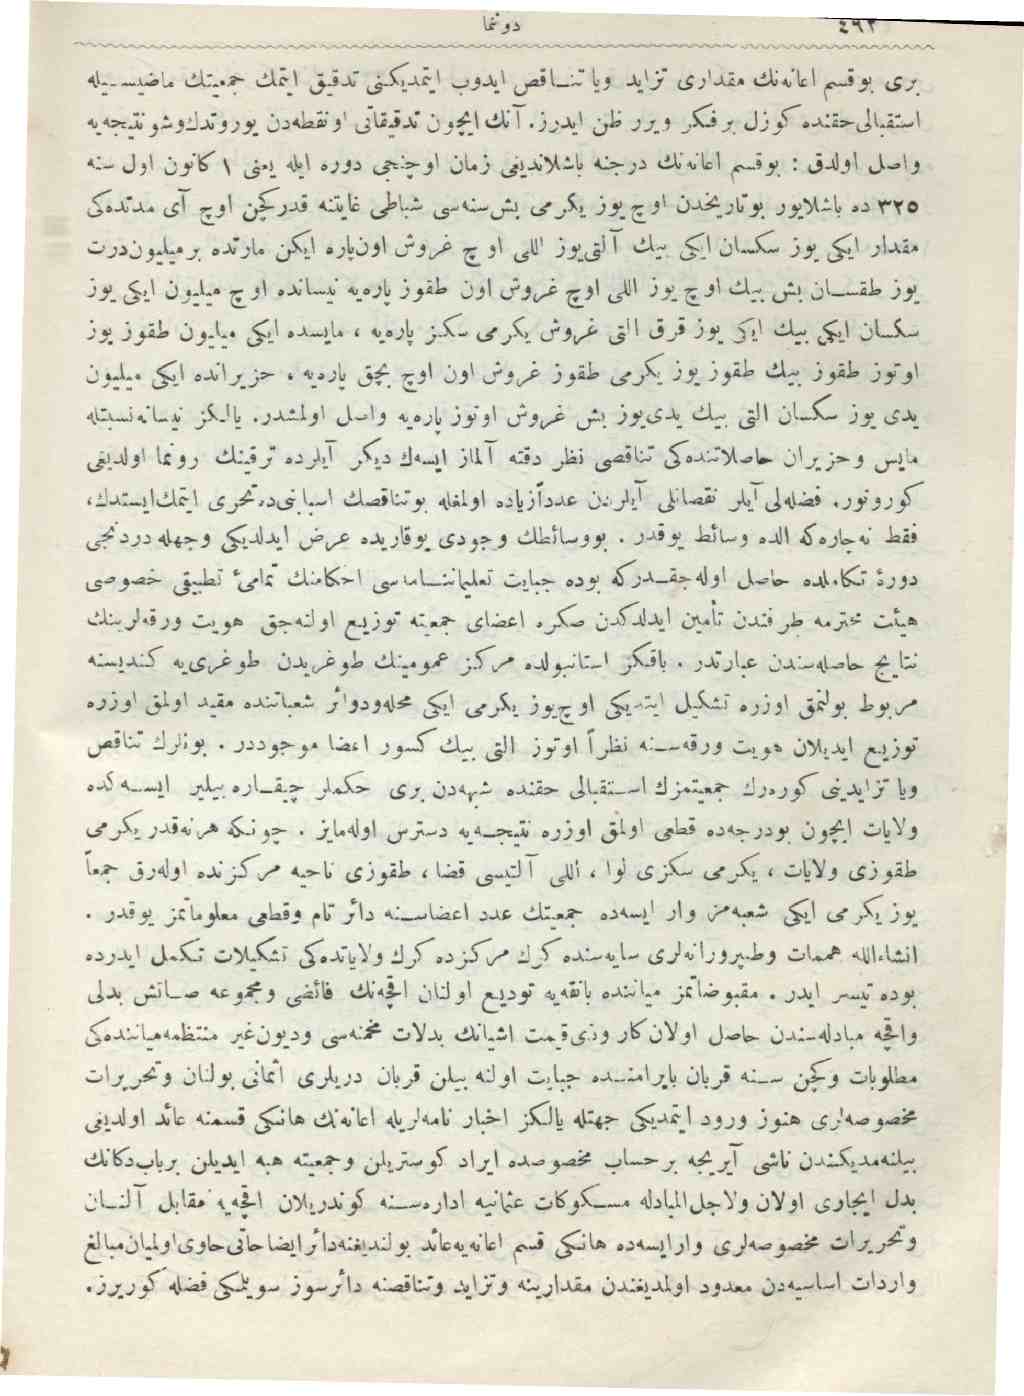 ٤٩٢ دوننما
بری بوقسم اعانه‌نك مقداری تزاید ویا تناقص ایدوب ایتمدیكنی تدقیق ایتمك جمعیتك ماضیسیله
استقبالی حقنده كوزل برفكر ویرر ظن ایدرز. آنك ایچون تدقیقاتی او نقطه‌دن یوروتدك وشو نتیجه‌یه
واصل اولدق : بوقسم اعانه‌نك درجنه باشلاندیغی زمان اوچنجی دوره ایله یعنی ١ كانون اول سنه
٣٢٥ ده باشلایور بوتاریخدن اوچ یوز یكرمی بش سنه‌سی شباطی غایتنه قدر كچن اوچ آی مدتده‌كی
مقدار ایكی یوز سكسان ایكی بیك آلتی یوز اللی اوچ غروش اون پاره ایكن مارتده بر میلیون درت
یوز طقسان بش بیك اوچ یوز اللی اوچ غروش اون طقوز پاره‌یه نیسانده اوچ میلیون ایكی یوز
سكسان ایكی بیك ایكی یوز قرق التی غروش یكرمی سكز پاره‌یه ، مایسده ایكی میلیون طقوز یوز
اوتوز طقوز بیك طقوز یوز یكرمی طقوز غروش اون اوچ بچق پاره‌یه ، حزیرانده ایكی میلیون
یدی یوز سكسان التی بیك یدی یوز بش غروش اوتوز پاره‌یه واصل اولمشدر. یالكز نیسانه نسبتله
مایس وحزیران حاصلاتنده‌كی تناقصی نظر دقته آلماز ایسه‌ك دیكر آیلرده ترقینك رونما اولدیغی
كورونور. فضله‌لی آیلر نقصانلی آیلردن عدداً زیاده اولمغله بوتناقصك اسبابنی‌ده تحری ایتمك ایستدك،
فقط نه‌چاره‌كه الده وسائط یوقدر . بووسائطك وجودی یوقاریده عرض ایدلدیكی وجهله دردنجی
دوره‌ٔ تكاملده حاصل اوله‌جقدركه بوده جبایت تعلیماتنامه‌سی احكامنك تمامیٔ تطبیقی خصوصی
هیئت محترمه طرفندن تأمین ایدلدكدن صكره اعضای جمعیته توزیع اولنه‌جق هویت ورقه‌لرینك
نتایج حاصله‌سندن عبارتدر . باقكز استانبولده مركز عمومینك طوغریدن طوغری‌یه كندیسنه
مربوط بولنمق اوزره تشكیل ایتدیكی اوچ‌یوز یكرمی ایكی محله‌ودوائر شعباتنده مقید اولمق اوزره
توزیع ایدیلان هویت ورقه‌سنه نظراً اوتوز التی بیك كسور اعضا موجوددر . بونلرك تناقص
ویا تزایدینی كوره‌رك جمعیتمزك استقبالی حقنده شبهه‌دن بری حكملر چیقاره بیلیر ایسه‌كده
ولایات ایچون بودرجه‌ده قطعی اولمق اوزره نتیجه‌یه دسترس اوله‌مایز . چونكه هرنه‌قدر یكرمی
طقوزی ولایات ، یكرمی سكزی لوا ، اللی آلتیسی قضا ، طقوزی ناحیه مركزنده اوله‌رق جمعاً
یوز یكرمی ایكی شعبه‌مز وار ایسه‌ده جمعیتك عدد اعضاسنه دائر تام وقطعی معلوماتمز یوقدر .
انشاءالله همات وطنپرورانه‌لری سایه‌سنده كرك مركزده كرك ولایاتده‌كی تشكیلات تكمل ایدرده
بوده تیسر ایدر . مقبوضاتمز میاننده بانقه‌یه تودیع اولنان اقچه‌نك فائضی ومجموعه صاتش بدلی
واقچه مبادله‌سندن حاصل اولان كار وذی‌قیمت اشیانك بدلات مخمنه‌سی ودیون‌غیر منتظمه‌میاننده‌كی
مطلوبات وكچن سنه قربان بایرامنده جبایت اولنه بیلن قربان دریلری اثمانی بولنان وتحریرات
مخصوصه‌لری هنوز ورود ایتمدیكی جهتله یالكز اخبار نامه‌لریله اعانه‌نك هانكی قسمنه عائد اولدیغی
بیلنه‌مدیكندن ناشی آیریجه بر حساب مخصوصده ایراد كوستریلن وجمعیته هبه ایدیلن برباب‌دكانك
بدل ایجاری اولان ولاجل‌المبادله مسكوكات عثمانیه اداره‌سنه كوندریلان اقچه‌یه مقابل آلنان
وتحریرات مخصوصه‌لری وارایسه‌ده هانكی قسم اعانه‌یه‌عائد بولندیغنه‌دائر ایضاحاتی حاوی اولمیان مبالغ
واردات اساسیه‌دن معدود اولمدیغندن مقدارینه وتزاید وتناقصنه دائر سوز سویلمكی فضله كوریرز.